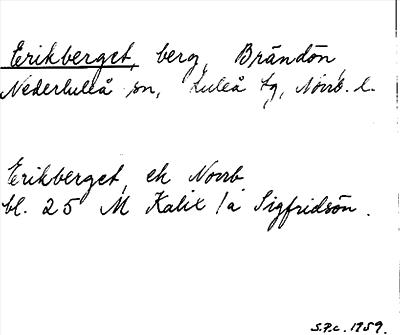 Erikberget, berg, Brändön,
Nederluleå sn, Luleå tg, Norrb. l.
Erikberget, ek Norrb
bl. 25 M Kalix /a Sigfridsön.
S.P.c. 1959.